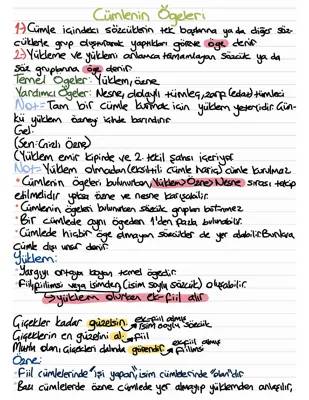 Cümlenin Ögeleri
1-) Cümle içindeki sözcüklerin tek başlarına ya da diğer söz-
cüklerle grup oluşturarak yaptıkları göreve öge denir
2-) Yükleme ve yüklemi anlamca tamamlayan sözcük ya da
söz gruplarına öge denir
Temel Ögeler: Yüklem, özne
Yardımcı Ögeler: Nesne, dolaylı tümleç, zarf (edat) tümleci
Not= Tam bir cümle kurmak için yüklem yeterlidir. Çün-
kü yüklem özneyi içinde barındırır
Gel.
(Sen: Gizli Özne)
(Yüklem emir kipinde ve 2. tekil şahsı içeriyor
Not= Yüklem olmadan (eksiltili cümle hariç) cümle kurulmaz
* Cümlenin ögeleri bulunurken, Yüklem Özne Nesne sırası takip
edilmelidir yoksa özne ve nesne karışabilir.
* Cümlenin ögeleri bulunurken sözcük grupları bölünmez
* Bir cümlede aynı ögeden 1'den fazla bulunabilir.
* Cümlede hiçbir öge olmayan sözcükler de yer alabilir. Bunlara
cümle dışı unsur denir.
Yüklem:
* Yargıyı ortaya koyan temel ögedir.
* Fiil, fiilimsi veya isimden (isim soylu sözcük) oluşabilir.
→ yüklem olurken ek-fiil alır
Çiçekler kadar güzelsin. → ek-fiil almış isim soylu sözcük
Çiçeklerin en güzelini al. → fiil
Mutlu olan çiçekleri dalında görendir → ek fiil almış fiilimsi
Özne:
* Fiil cümlelerinde "işi yapan", isim cümlelerinde "olan"dır
* Bazı cümlelerde özne cümlede yer almayıp yüklemden anlaşılır,